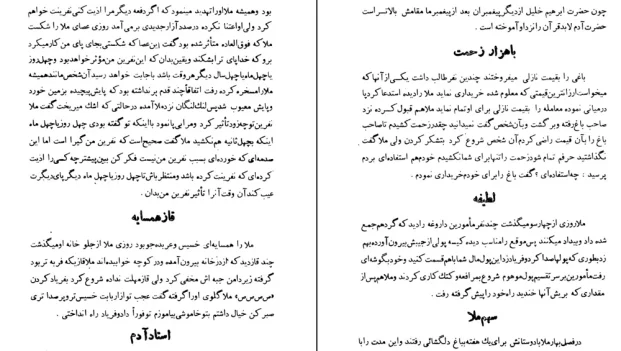 چون حضرت ابرهیم خلیل از دیگر پیغمبران بعد از پیغمبر ما مقامش بالاتر است
حضرت آدم لابد قرآن را نزد او آموخته است .
باهزار زحمت
باغی را بقیمت نازلی میفروختند چندین نفر طالب داشت یکی از آنها که
میخواست ارزانتر بقیمتی که معلوم شده خریداری نماید ملا را دیده استدعا کرد با
درمیانی نموده معامله را بقیمت نازلی برای او تمام نماید ملا هم قبول کرده نزد
صاحب باغ رفته و برگشت و بآن شخص گفت نمیدانید چقدر زحمت کشیدم تا صاحب
باغ را بآن قیمت راضی کردم آن شخص شروع کرد بتشکر کردن ولی ملا گفت
نگذاشتید حرفم تمام شود زحمت را تنها برای شما نکشیدم خودم هم استفاده‌ای بردم
پرسید : چه استفاده‌ای ؟ گفت باغ را برای خودم خریداری نمودم .
لطیفه
ملا روزی از چهارسو میگذشت چند نفر مأمورین داروغه را دید که گرد هم جمع
شده داد و بیداد میکنند پس موقع را مناسب دیده کیسه پولی از جیبش بیرون آورده بهم
زد بطوری که پولها صدا کرد و فریاد زد این پول مال شما باهم قسمت کنید و خود بگوشه‌ای
رفت مأمورین بر سر تقسیم پول موهوم شروع بمرافعه و کتك کاری کردند و ملا هم پس از
مقداری که بریش آنها خندید راه خود را پیش گرفته رفت .
سهم ملا
در فصل بهار ملا با دوستانش برای یك هفته بباغ دلگشائی رفتند و این مدت را با
بود و همیشه ملا او را تهدید مینمود که اگر دفعه دیگر مرا اذیت کنی نفرینت خواهم
کرد ولی او اعتنا نکرده در صدد آزار جدیدی بر می آمد روزی عصای ملا را شکست
ملا که فوق العاده متأثر شده بود گفت این عصا که شکستی بجای پای من کار میکرد
برو که خدا پای ترا بشکند و یقین بدان که این نفرین من مؤثر خواهد بود و چهل روز
یا چهل ماه یا چهل سال دیگر هر وقت باشد باجابت خواهد رسید آن شخص مانند همیشه
ملا را مسخره کرده رفت اتفاقاً چند قدم بر نداشته بود که پایش پیچیده بزمین خورد
و پایش معیوب شد پس لنگان لنگان نزد ملا آمده در حالتی که اشك میریخت گفت ملا
نفرین تو چه زود تأثیر کرد و مرا بی پا نمود با اینکه تو گفته بودی چهل روز یا چهل ماه
اینکه بچهل ثانیه هم نکشید ملا گفت صحیح است که نفرین من گیرا است اما این
صدمه‌ای که خورده‌ای بسبب نفرین من نیست فکر کن ببین پیشتر چه کسی را اذیت
کرده‌ای که نفرینت کرده باشد و منتظر باش تا چهل روز یا چهل ماه دیگر پای دیگرت
عیب کند آن وقت آنرا تأثیر نفرین من بدان .
قاز همسایه
ملا را همسایه‌ای خسیس و عربده جو بود روزی ملا از جلو خانه او میگذشت
چند قاز دید که از در خانه بیرون آمده و در کوچه خوابیده‌اند ملا قازیکه فربه تر بود
گرفته زیر دامن جبه اش مخفی کرد ولی قاز مهلت نداده شروع کرد بفریاد کردن
«س س س س» ملا گلوی او را گرفته گفت عجب تو از اربابت خسیس تر و پر صدا تری
صبر کن خیال داشتم بتو خاموشی بیاموزم تو فوراً داد و فریاد راه انداختی .
استاد آدم